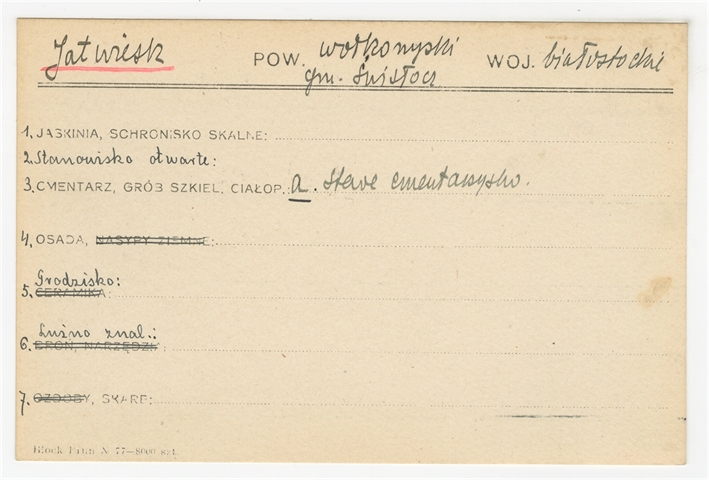 Jatwiesk POW. wołkonyski WOJ. białostockie
gm. Świsłocz
1. JASKINIA, SCHRONISKO SKALNE:
2. Stanowisko otwarte:
3. CMENTARZ, GRÓB SZKIEL. CIAŁOP.: a. Stare cmentarzysko.
4. OSADA, NASYPY ZIEMNE:
Grodzisko:
5. CERAMIKA:
Luźno znal.:
6. BROŃ, NARZĘDZIA:
7. OZDOBY, SKARB:
Block Film N 77—8000 szt.